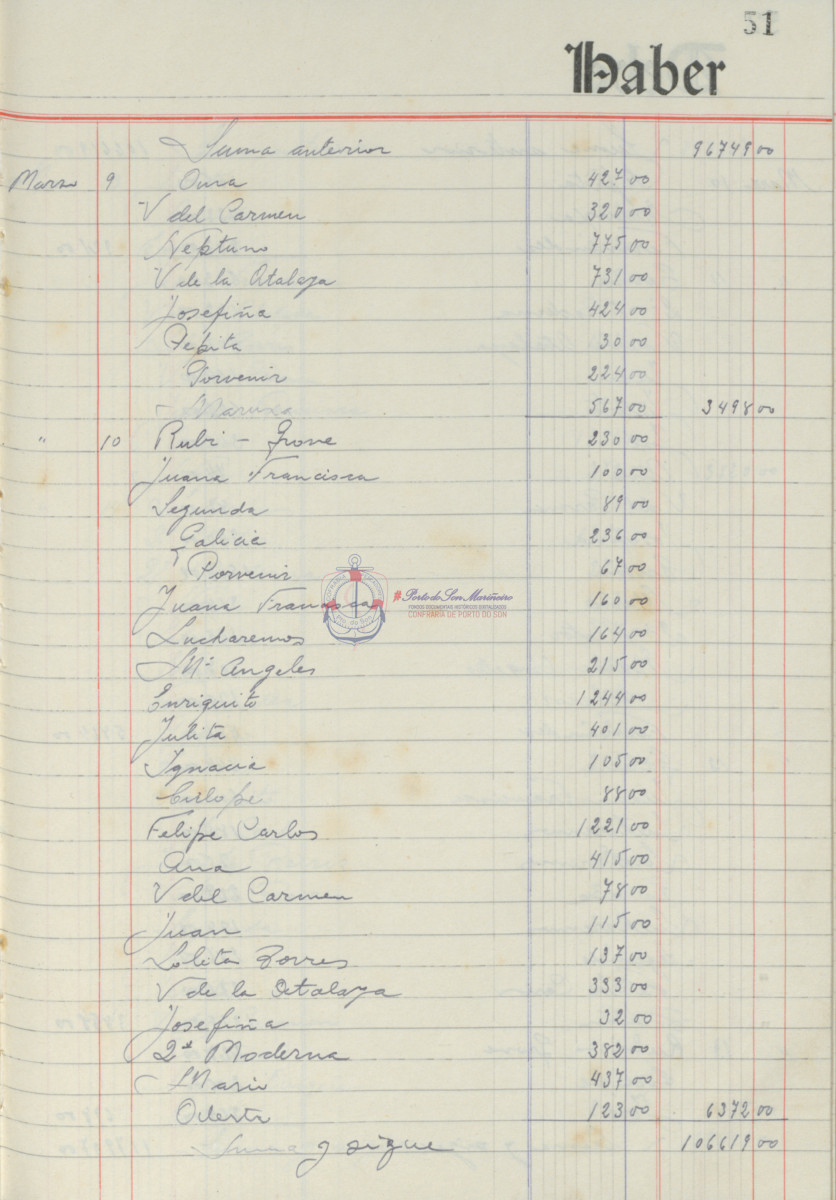 51
Haber
Suma anterior 96749 00
Marzo 9 Oura 427 00
V del Carmen 320 00
Neptuno 775 00
V de la Atalaya 731 00
Josefiña 424 00
Pepita 30 00
Porvenir 224 00
Maruxa 567 00 3498 00
" 10 Rubi - Grove 230 00
Juana Francisca 100 00
Segunda 89 00
Galicia 236 00
Porvenir 67 00
Juana Francisca 160 00
Lucharemos 164 00
Mª Angeles 215 00
Enriquito 1244 00
Julita 401 00
Ignacia 105 00
88 00
Felipe Carlos 1221 00
Ana 415 00
V del Carmen 78 00
Juan 115 00
Lolita Torres 137 00
V de la Atalaya 333 00
Josefiña 32 00
2ª Moderna 382 00
Mari 437 00
123 00 6372 00
Suma y sigue 106619 00
#PortodoSonMariñeiro
FONDOS DOCUMENTAIS HISTÓRICOS DIXITALIZADOS
CONFRARÍA DE PORTO DO SON